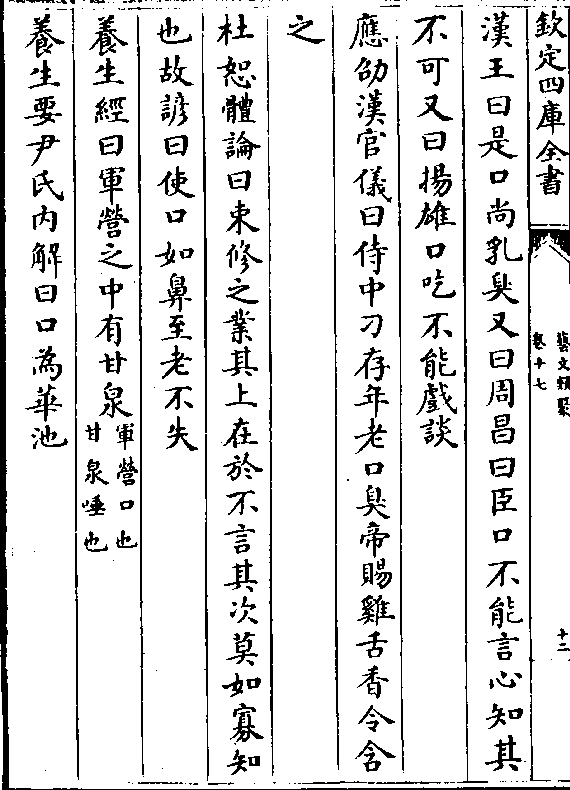 欽定四庫全書
藝文類聚
卷十七
十二
漢王曰是口尚乳臭又曰周昌曰臣口不能言心知其
不可又曰揚雄口吃不能戲談
應劭漢官儀曰侍中刁存年老口臭帝賜雞舌香令含
之
杜恕體論曰束修之業其上在於不言其次莫如寡知
也故諺曰使口如鼻至老不失
養生經曰軍營之中有甘泉軍營口也
甘泉唾也
養生要尹氏内解曰口為華池